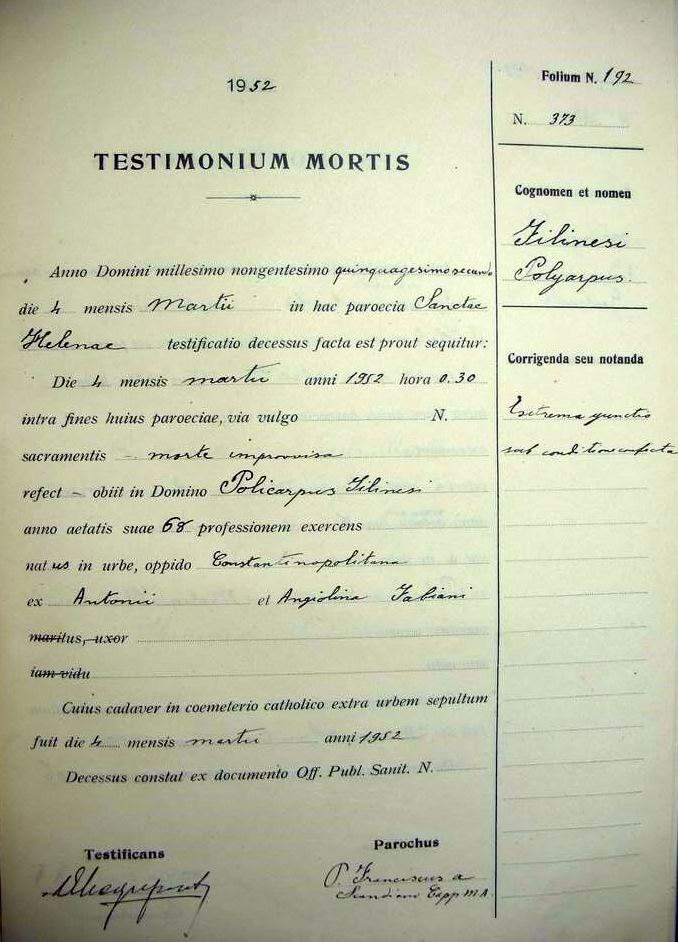 1952
TESTIMONIUM MORTIS
Anno Domini millesimo nongentesimo quinquagesimo secundo
die 4 mensis Martii in hac paroecia Sanctae
Helenae testificatio decessus facta est prout sequitur:
Die 4 mensis martii anni 1952 hora 0.30
intra fines huius paroeciae, via vulgo N.
sacramentis – morte improvvisa
refect – obiit in Domino Policarpus Filinesi
anno aetatis suae 68 professionem exercens
natus in urbe, oppido Constantinopolitana
ex Antonii et Angiolina Fabiani
maritus, uxor
iam vidu
Cuius cadaver in coemeterio catholico extra urbem sepultum
fuit die 4 mensis martii anni 1952
Decessus constat ex documento Off. Publ. Sanit. N.
Testificans
Parochus
P. Franciscus a
Scandiano Capp. M.A.
Folium N. 192
N. 373
Cognomen et nomen
Filinesi
Polyarpus.
Corrigenda seu notanda
Estrema unctio
sub conditione confecta